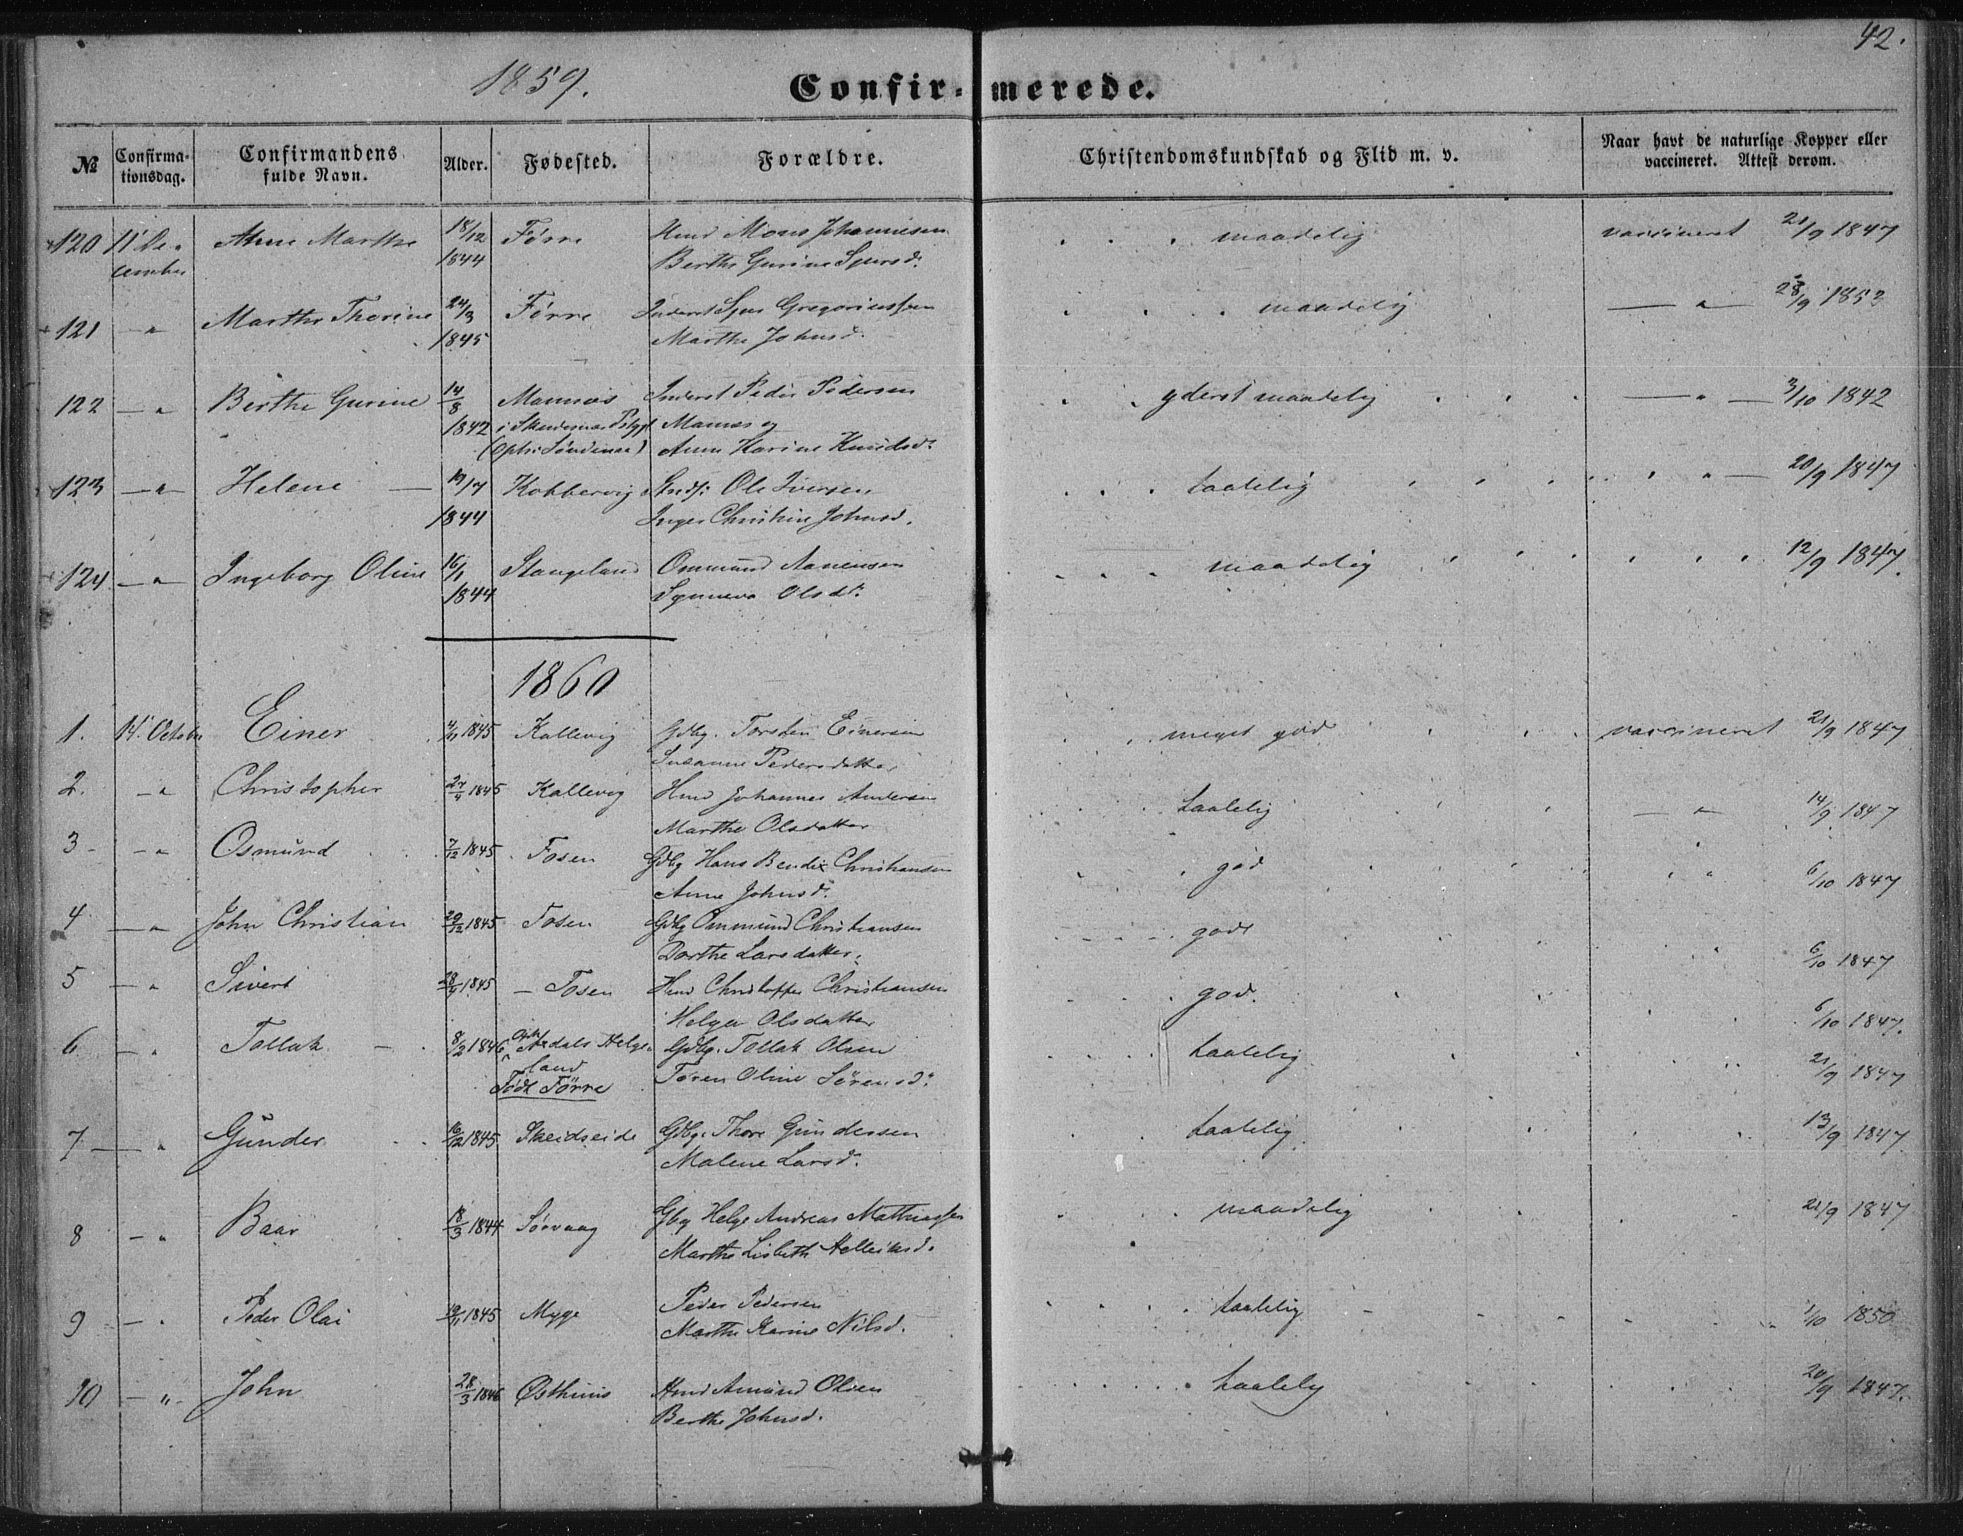 42.
1859.
Confirmerede.
№ Confirmationsdag. Confirmandens fulde Navn. Alder. Fødested. Forældre. Christendomskundskab og Flid m. v. Naar havt de naturlige Kopper eller vaccineret. Attest derom.
120 11' De- Anne Marthe 18/12 Førre Hmd Mons Johannesen maadelig vaccineret 21/9 1847
cember 1844 Berthe Gurine Sjursd.
121 — " Marthe Thorine 24/3 Førre Inderst Sjur Gregoriussen maadelig — " 28/9 185
1845 Marthe Johnsd.
122 — " Berthe Gurine 14/8 Mannes Inderst Peder Pedersen yderst maadelig — " — 3/10 1842
1842 i Skudesnes Mannes og
Anne Karine Knudsd.
123 — " Helene — 19/7 Kobbervig Ole Iversen taalelig " — 20/9 1847
1844 Inger Christine Johnsd.
124 — " Ingeborg Oline 16/1 Stangeland Ommund Aanensen maadelig 12/9 1847.
1844 Synneva Olsdt.
1860
1. 14' October Einer 4/11 1845 Kallevig Gdbg. Torsten Einersen meget god vaccineret 21/9 1847
Susanne Pedersdatter
2. — " Christopher 27/4 1845 Kallevig Hmd Johannes Andersen taalelig — " 14/9 1847
Marthe Olsdatter
3 — " Osmund 7/12 1845 Fosen Gdbg Hans Bendix Christiansen god " 6/10 1847
Anne Johnsd.
4 — " John Christian 29/12 1845 Fosen Gdbg Ommund Christiansen godt 6/10 1847
Dorthe Larsdatter.
5 — " Sivert 1845 — Fosen Hmd Christoffer Christiansen god. 6/10 1847.
Helga Olsdatter
6 — " Tollak — 8/2 1846 Aadals Helge- Gdbg. Tollak Olsen taalelig 21/9 1847
land Toren Oline Sørensd.
Født Førre
7 — " Gunder 16/12 1845 Skeidseide Gdbg. Thore Gundersen taalelig 13/9 1847.
Malene Larsd.
8 — " Baar 18/3 1844 Sørvaag Gbg Helge Andreas Mathiassen maadelig 21/9 1847
Marthe Lisbeth Helleiksd.
9 — " Peder Olai 19/11 1845 Myge Peder Pedersen taalelig 1/10 1850
Marthe Karine Nilsd.
10 — " John 28/3 1846 Østhuus Hmd Amund Olsen taalelig 20/9 1847.
Berthe Johnsd.